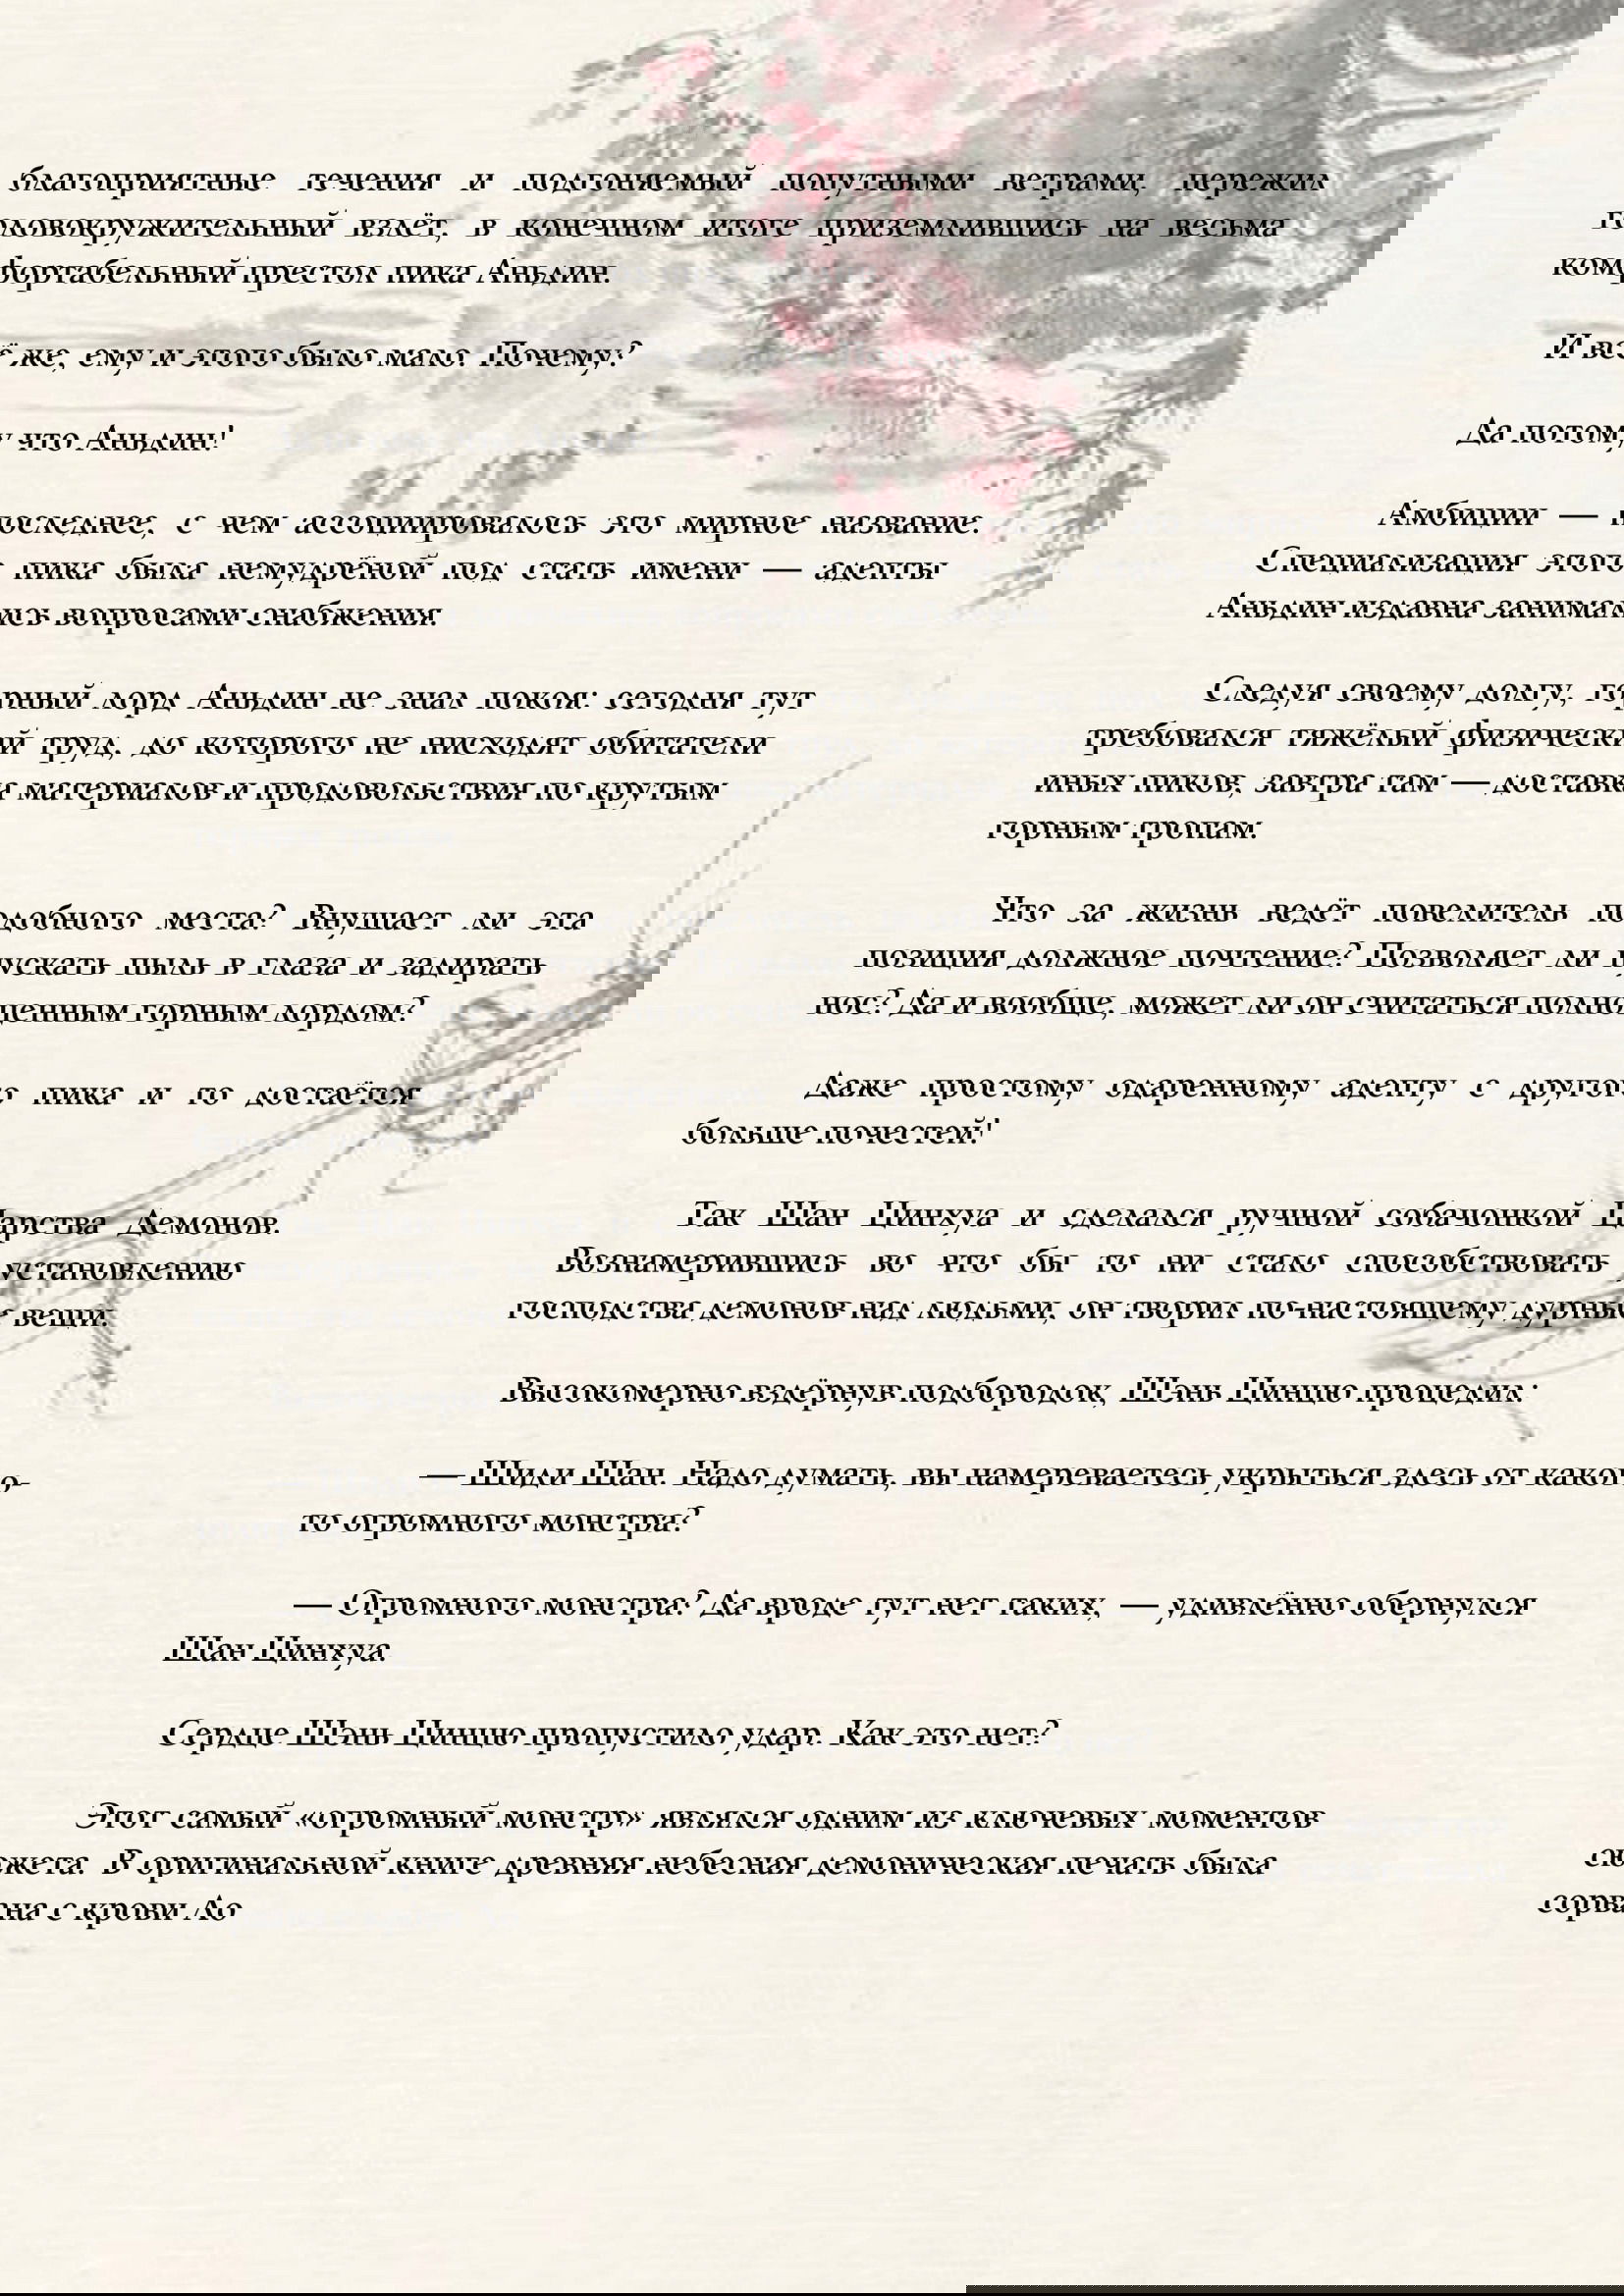 благоприятные течения и подгоняемый попутными ветрами, пережил
головокружительный взлёт, в конечном итоге приземлившись на весьма
комфортабельный престол пика Аньдин.
И всё же, ему и этого было мало. Почему?
Да потому что Аньдин!
Амбиции — последнее, с чем ассоциировалось это мирное название.
Специализация этого пика была немудрёной под стать имени — адепты
Аньдин издавна занимались вопросами снабжения.
Следуя своему долгу, горный лорд Аньдин не знал покоя: сегодня тут
требовался тяжёлый физический труд, до которого не нисходят обитатели
иных пиков, завтра там — доставка материалов и продовольствия по крутым
горным тропам.
Что за жизнь ведёт повелитель подобного места? Внушает ли эта
позиция должное почтение? Позволяет ли пускать пыль в глаза и задирать
нос? Да и вообще, может ли он считаться полноценным горным лордом?
Даже простому одаренному адепту с другого пика и то достаётся
больше почестей!
Так Шан Цинхуа и сделался ручной собачонкой Царства Демонов.
Вознамерившись во что бы то ни стало способствовать установлению
господства демонов над людьми, он творил по-настоящему дурные вещи.
Высокомерно вздёрнув подбородок, Шэнь Цинцю процедил:
— Шиди Шан. Надо думать, вы намереваетесь укрыться здесь от какого-
то огромного монстра?
— Огромного монстра? Да вроде тут нет таких, — удивлённо обернулся
Шан Цинхуа.
Сердце Шэнь Цинцю пропустило удар. Как это нет?
Этот самый «огромный монстр» являлся одним из ключевых моментов
сюжета. В оригинальной книге древняя небесная демоническая печать была
сорвана с крови Ло